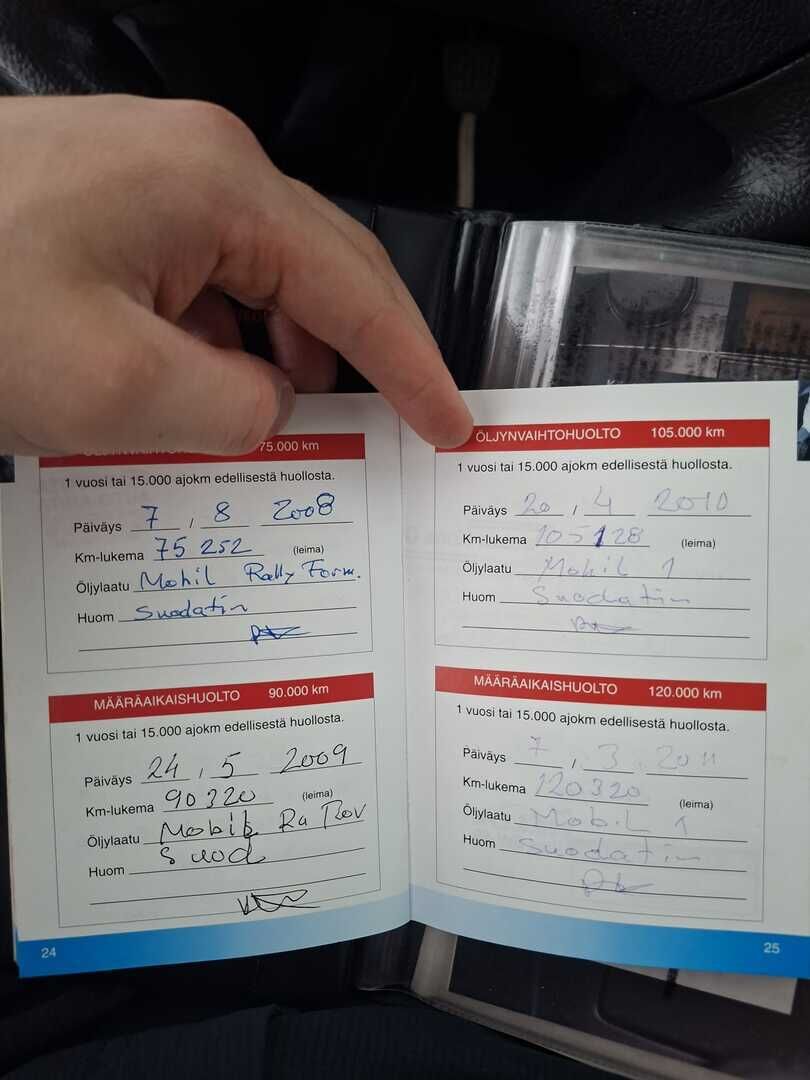 75.000 km
1 vuosi tai 15.000 ajokm edellisestä huollosta.
Päiväys 7 / 8 2008
Km-lukema 75 252 (leima)
Öljylaatu Mobil Rally Form.
Huom Suodatin
MÄÄRÄAIKAISHUOLTO 90.000 km
1 vuosi tai 15.000 ajokm edellisestä huollosta.
Päiväys 24 , 5 2009
Km-lukema 90320 (leima)
Öljylaatu Mobil Ra
Huom Suod
24
ÖLJYNVAIHTOHUOLTO 105.000 km
1 vuosi tai 15.000 ajokm edellisestä huollosta.
Päiväys 20 / 4 2010
Km-lukema 105128 (leima)
Öljylaatu Mobil 1
Huom Suodatin
MÄÄRÄAIKAISHUOLTO 120.000 km
1 vuosi tai 15.000 ajokm edellisestä huollosta.
Päiväys 7 , 3 2011
Km-lukema 120320 (leima)
Öljylaatu Mobil 1
Huom Suodatin
25